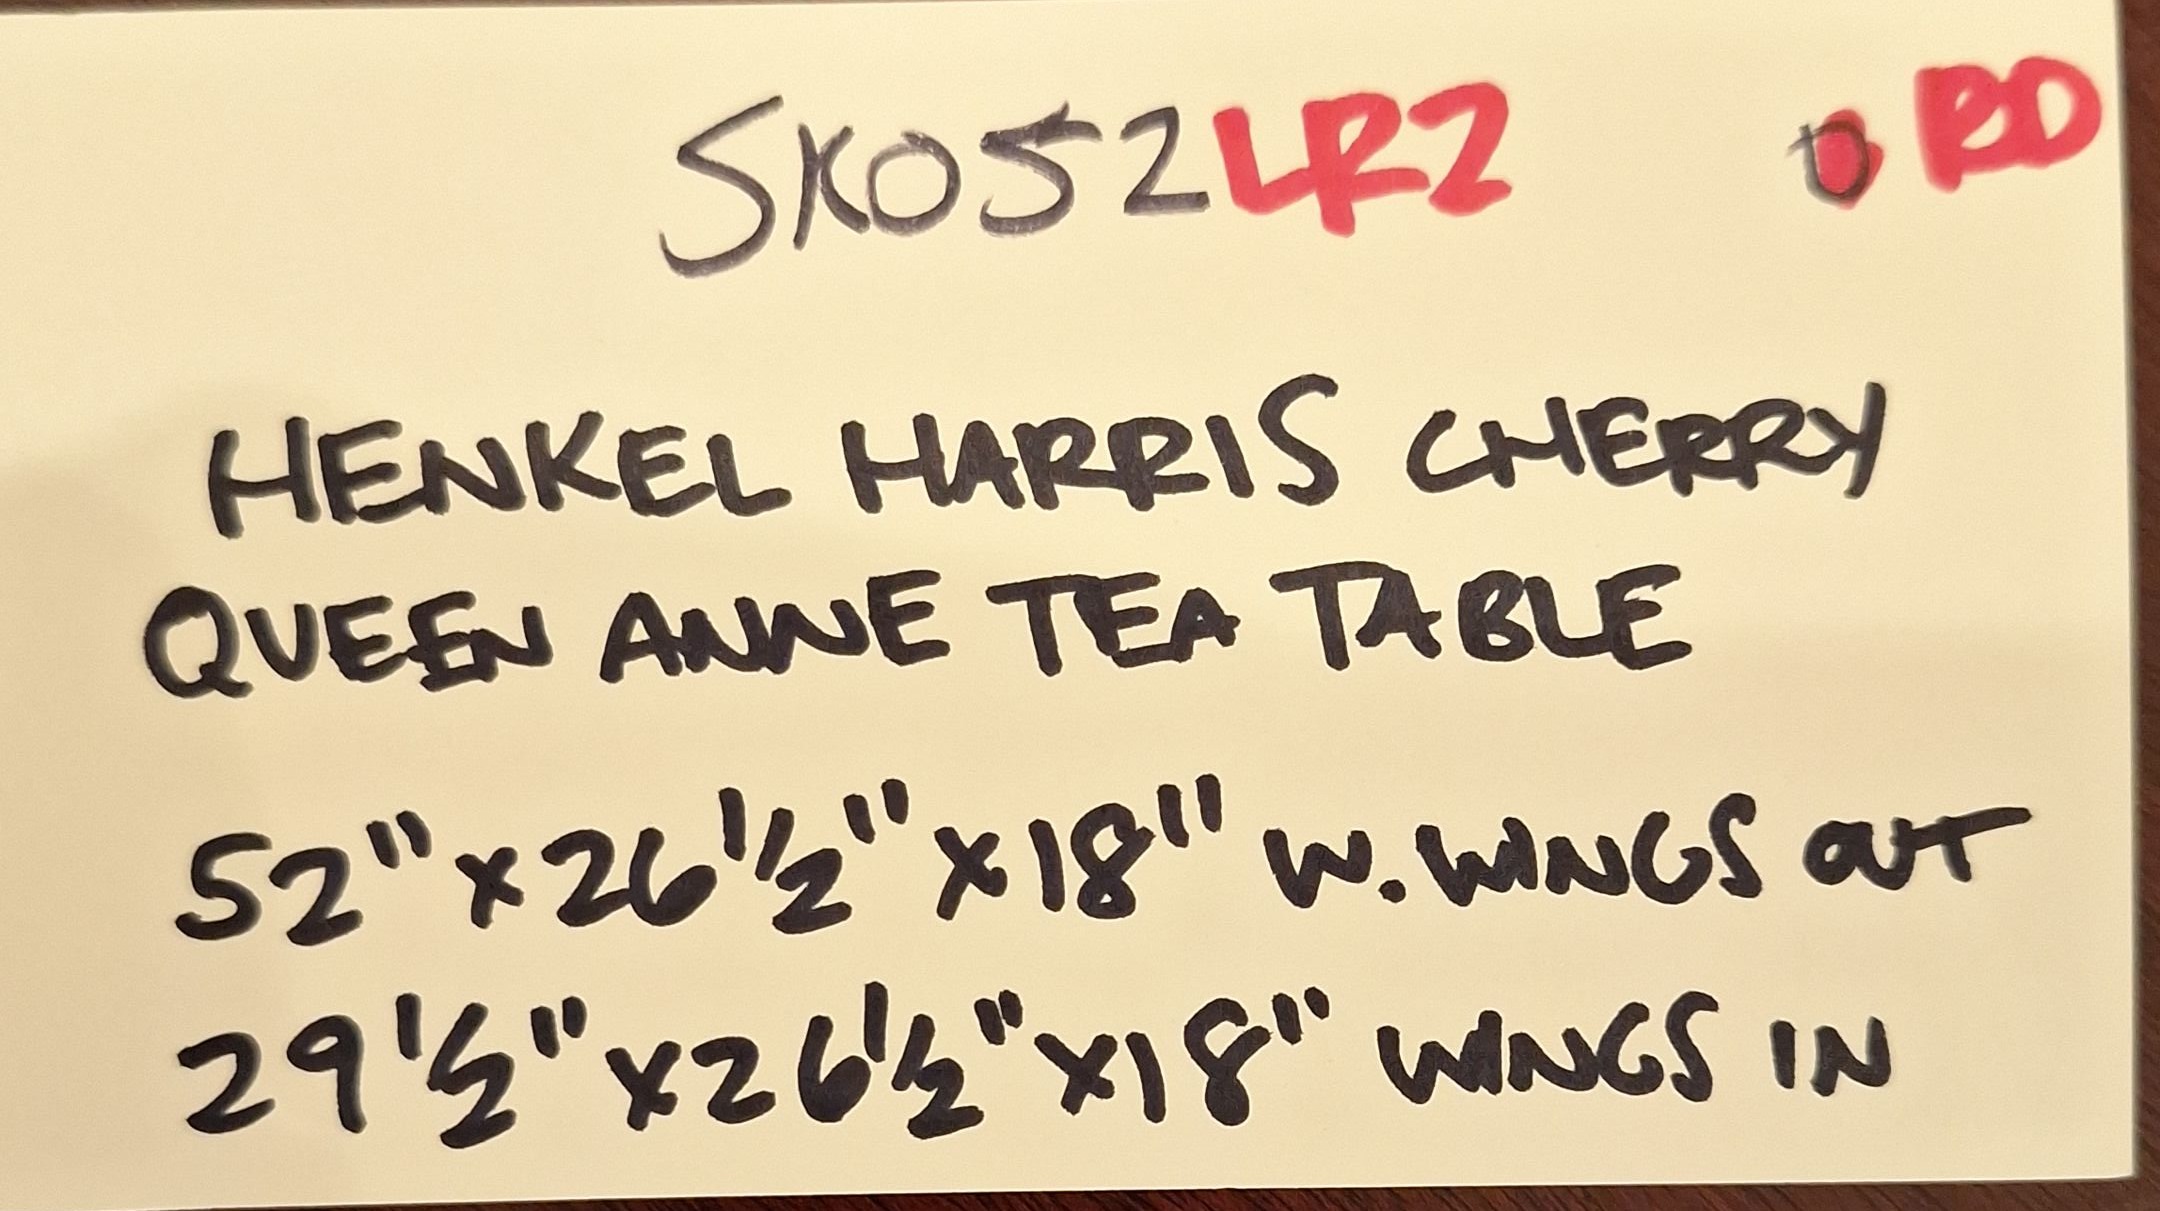 SK052LR2 BD
HENKEL HARRIS CHERRY
QUEEN ANNE TEA TABLE
52" x 26 1/2" x 18" W. WINGS OUT
29 1/2" x 26 1/2" x 18" WINGS IN